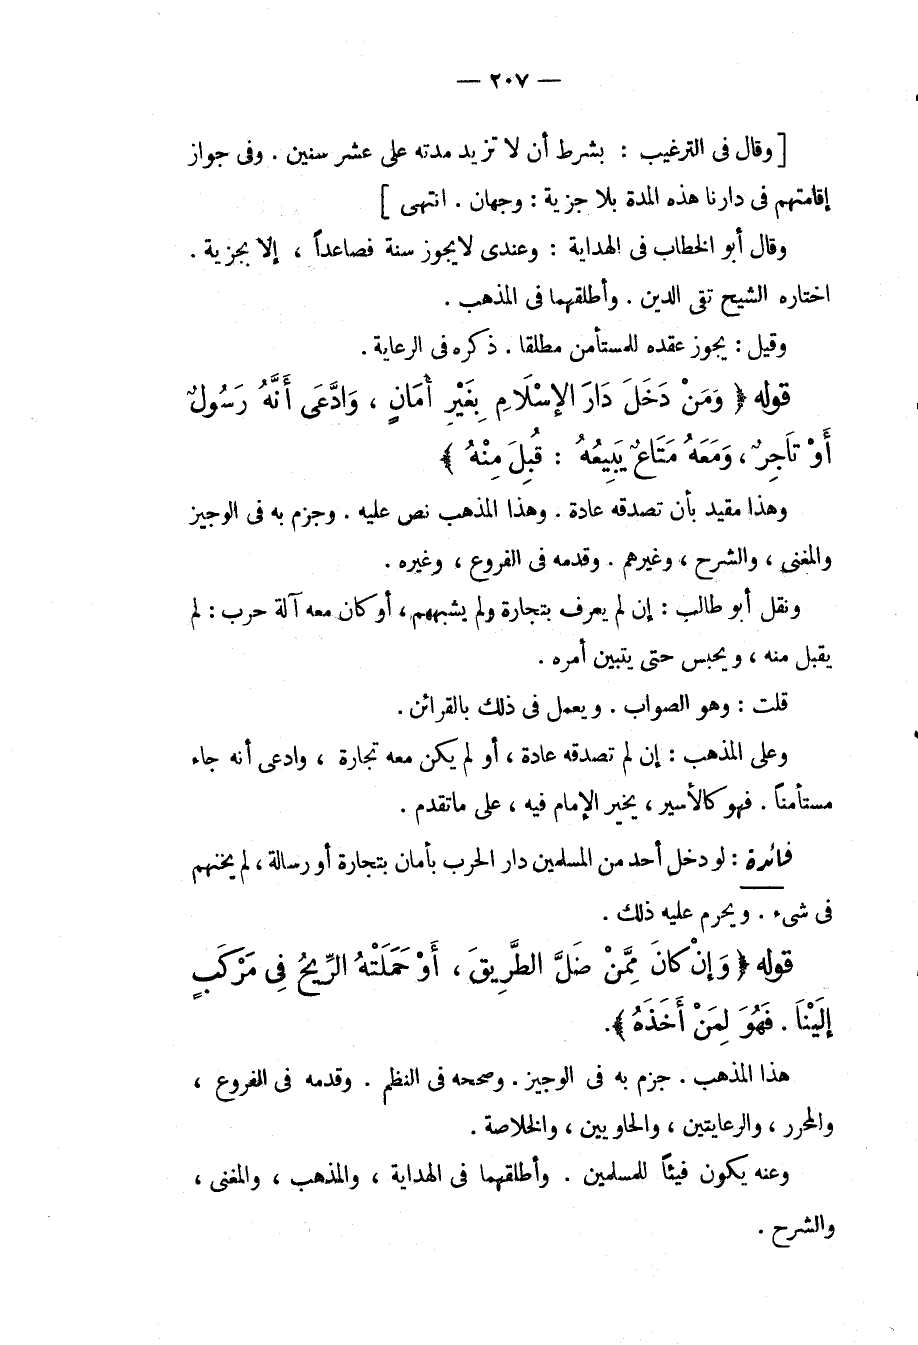 — ٢٠٧ —
[ وقال فى الترغيب : بشرط أن لا تزيد مدته على عشر سنين . وفى جواز
إقامتهم فى دارنا هذه المدة بلا جزية : وجهان . انتهى ]
وقال أبو الخطاب فى الهداية : وعندى لايجوز سنة فصاعداً ، إلا بجزية .
اختاره الشيخ تقى الدين . وأطلقهما فى المذهب .
وقيل : يجوز عقده للمستأمن مطلقا . ذكره فى الرعاية .
قوله ﴿ وَمَنْ دَخَلَ دَارَ الإِسْلَامِ بِغَيْرِ أَمَانٍ ، وَادَّعَى أَنَّهُ رَسُولٌ
أَوْ تَاجِرٌ ، وَمَعَهُ مَتَاعٌ يَبِيعُهُ : قُبِلَ مِنْهُ ﴾
وهذا مقيد بأن تصدقه عادة . وهذا المذهب نص عليه . وجزم به فى الوجيز
والمغنى ، والشرح ، وغيرهم . وقدمه فى الفروع ، وغيره .
ونقل أبو طالب : إن لم يعرف بتجارة ولم يشبههم ، أو كان معه آلة حرب : لم
يقبل منه ، ويحبس حتى يتبين أمره .
قلت : وهو الصواب . ويعمل فى ذلك بالقرائن .
وعلى المذهب : إن لم تصدقه عادة ، أو لم يكن معه تجارة ، وادعى أنه جاء
مستأمناً . فهو كالأسير ، يخير الإمام فيه ، على ماتقدم .
فائدة : لو دخل أحد من المسلمين دار الحرب بأمان بتجارة أو رسالة ، لم يخنهم
فى شىء . ويحرم عليه ذلك .
قوله ﴿ وَإِنْ كَانَ مِمَّنْ ضَلَّ الطَّرِيقَ ، أَوْ حَمَلَتْهُ الرِّيحُ فِى مَرْكَبٍ
إِلَيْنَا . فَهُوَ لِمَنْ أَخَذَهُ ﴾.
هذا المذهب . جزم به فى الوجيز . وصححه فى النظم . وقدمه فى الفروع ،
والمحرر ، والرعايتين ، والحاويين ، والخلاصة .
وعنه يكون فيئاً للمسلمين . وأطلقهما فى الهداية ، والمذهب ، والمغنى ،
والشرح .